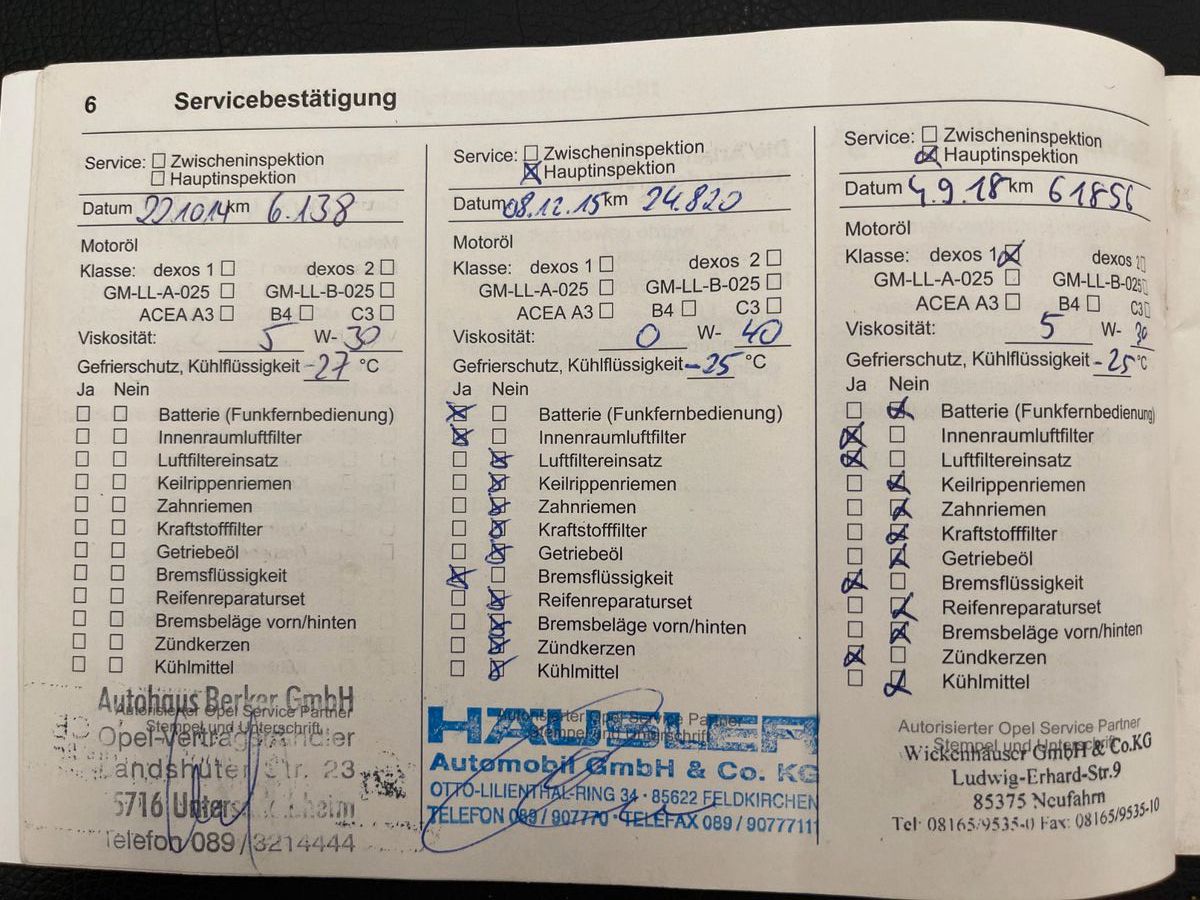 6 Servicebestätigung
Service: ☐ Zwischeninspektion
☐ Hauptinspektion
Datum 22.10.14 km 6.138
Motoröl
Klasse: dexos 1 ☐ dexos 2 ☐
GM-LL-A-025 ☐ GM-LL-B-025 ☐
ACEA A3 ☐ B4 ☐ C3 ☐
Viskosität: 5 W- 30
Gefrierschutz, Kühlflüssigkeit -27 °C
Ja Nein
☐ ☐ Batterie (Funkfernbedienung)
☐ ☐ Innenraumluftfilter
☐ ☐ Luftfiltereinsatz
☐ ☐ Keilrippenriemen
☐ ☐ Zahnriemen
☐ ☐ Kraftstofffilter
☐ ☐ Getriebeöl
☐ ☐ Bremsflüssigkeit
☐ ☐ Reifenreparaturset
☐ ☐ Bremsbeläge vorn/hinten
☐ ☐ Zündkerzen
☐ ☐ Kühlmittel
Autohaus Berker GmbH
Autorisierter Opel Service Partner
Stempel und Unterschrift
Opel-Vertragshändler
Landshuter Str. 23
5716 Unterschleißheim
Telefon 089/3214444
Service: ☐ Zwischeninspektion
☒ Hauptinspektion
Datum 08.12.15 km 24.820
Motoröl
Klasse: dexos 1 ☐ dexos 2 ☐
GM-LL-A-025 ☐ GM-LL-B-025 ☐
ACEA A3 ☐ B4 ☐ C3 ☐
Viskosität: 0 W- 40
Gefrierschutz, Kühlflüssigkeit -25 °C
Ja Nein
☒ ☐ Batterie (Funkfernbedienung)
☒ ☐ Innenraumluftfilter
☐ ☒ Luftfiltereinsatz
☐ ☒ Keilrippenriemen
☐ ☒ Zahnriemen
☐ ☒ Kraftstofffilter
☐ ☒ Getriebeöl
☒ ☐ Bremsflüssigkeit
☐ ☒ Reifenreparaturset
☐ ☒ Bremsbeläge vorn/hinten
☐ ☒ Zündkerzen
☐ ☒ Kühlmittel
Autorisierter Opel Service Partner
Stempel und Unterschrift
HÄUSLER
Automobil GmbH & Co. KG
OTTO-LILIENTHAL-RING 34 · 85622 FELDKIRCHEN
TELEFON 089 / 907770 · TELEFAX 089 / 90777111
Service: ☐ Zwischeninspektion
☒ Hauptinspektion
Datum 4.9.18 km 61856
Motoröl
Klasse: dexos 1 ☒ dexos 2 ☐
GM-LL-A-025 ☐ GM-LL-B-025 ☐
ACEA A3 ☐ B4 ☐ C3 ☐
Viskosität: 5 W- 30
Gefrierschutz, Kühlflüssigkeit -25 °C
Ja Nein
☐ ☒ Batterie (Funkfernbedienung)
☒ ☐ Innenraumluftfilter
☒ ☐ Luftfiltereinsatz
☐ ☒ Keilrippenriemen
☐ ☒ Zahnriemen
☐ ☒ Kraftstofffilter
☐ ☒ Getriebeöl
☒ ☐ Bremsflüssigkeit
☐ ☒ Reifenreparaturset
☐ ☒ Bremsbeläge vorn/hinten
☒ ☐ Zündkerzen
☐ ☒ Kühlmittel
Autorisierter Opel Service Partner
Stempel und Unterschrift
Wickenhäuser GmbH & Co.KG
Ludwig-Erhard-Str.9
85375 Neufahrn
Tel: 08165/9535-0 Fax: 08165/9535-10